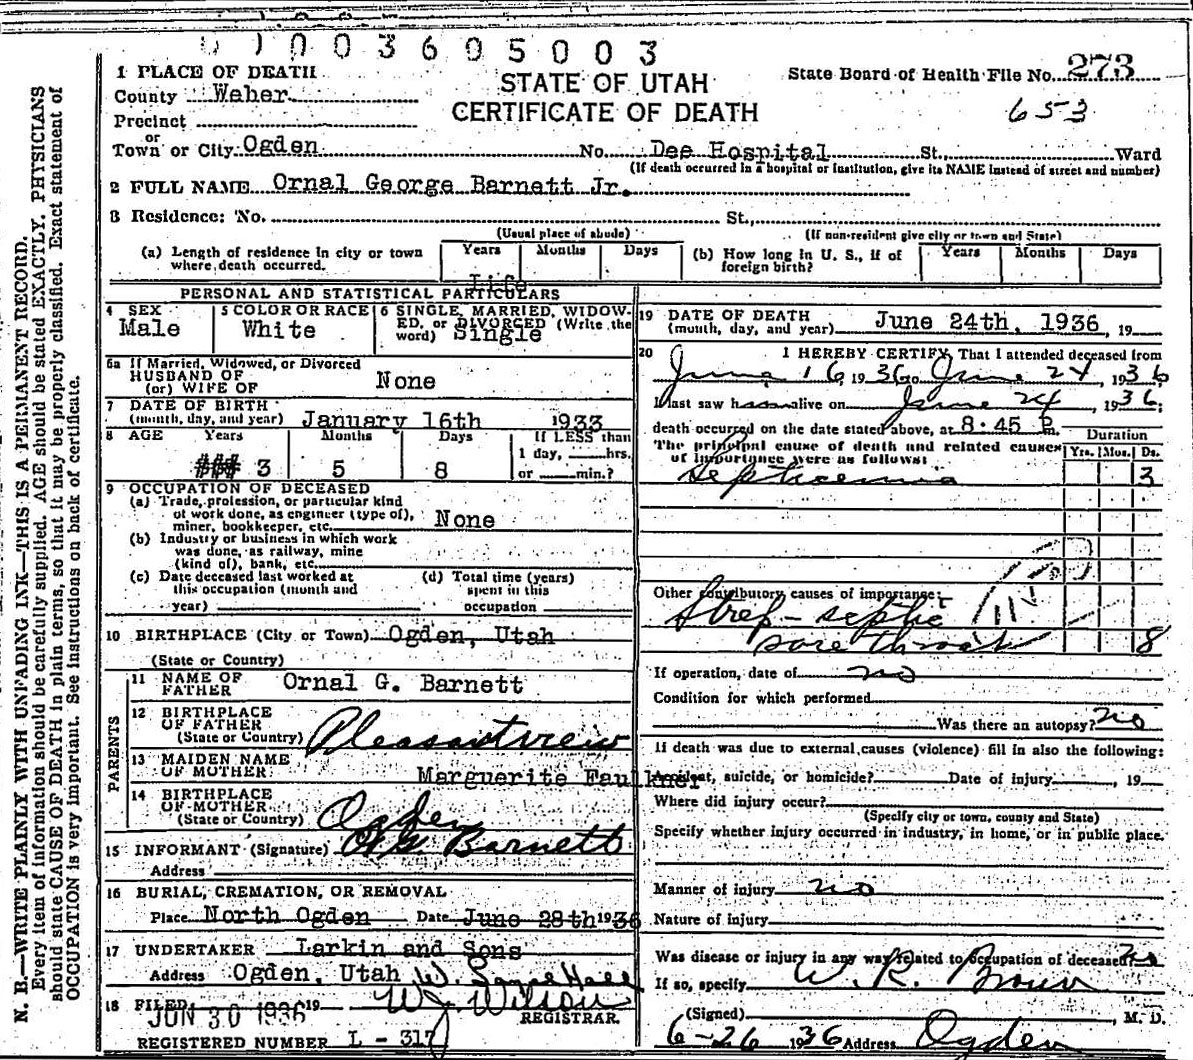 0 1 0 0 3 6 0 5 0 0 3
1 PLACE OF DEATH
County Weber
Precinct
or
Town or City Ogden No. Dee Hospital St., Ward
(If death occurred in a hospital or institution, give its NAME instead of street and number)
STATE OF UTAH
CERTIFICATE OF DEATH
State Board of Health File No. 273
653
2 FULL NAME Ornal George Barnett Jr.
3 Residence: No. St.,
(Usual place of abode) (If non-resident give city or town and State)
(a) Length of residence in city or town where death occurred. Years Months Days
Life
(b) How long in U. S., if of foreign birth? Years Months Days
PERSONAL AND STATISTICAL PARTICULARS
4 SEX
Male
5 COLOR OR RACE
White
6 SINGLE, MARRIED, WIDOW-
ED, or DIVORCED (Write the
word) Single
6a If Married, Widowed, or Divorced
HUSBAND OF
(or) WIFE OF None
7 DATE OF BIRTH
(month, day, and year) January 16th 1933
8 AGE Years Months Days If LESS than
1 day, hrs.
3 5 8 or min.?
9 OCCUPATION OF DECEASED
(a) Trade, profession, or particular kind
of work done, as engineer (type of),
miner, bookkeeper, etc. None
(b) Industry or business in which work
was done, as railway, mine
(kind of), bank, etc.
(c) Date deceased last worked at
this occupation (month and
year)
(d) Total time (years)
spent in this
occupation
10 BIRTHPLACE (City or Town) Ogden, Utah
(State or Country)
PARENTS
11 NAME OF
FATHER Ornal G. Barnett
12 BIRTHPLACE
OF FATHER
(State or Country) Pleasantview
13 MAIDEN NAME
OF MOTHER Marguerite Faulkner
14 BIRTHPLACE
OF MOTHER
(State or Country) Ogden
15 INFORMANT (Signature) O G Barnett
Address
16 BURIAL, CREMATION, OR REMOVAL
Place North Ogden Date June 28th 1936
17 UNDERTAKER Larkin and Sons
Address Ogden, Utah
18 FILED JUN 30 1936 19 W J Wilson
REGISTRAR.
REGISTERED NUMBER L - 317
19 DATE OF DEATH
(month, day, and year) June 24th, 1936, 19
20 I HEREBY CERTIFY, That I attended deceased from
June 16 1936 to June 24, 1936
I last saw h alive on June 24, 1936;
death occurred on the date stated above, at 8:45 P.
The principal cause of death and related causes
of importance were as follows:
Duration
Yrs. Mos. Ds.
Septicemia 3
Other contributory causes of importance:
Strep-septic
sore throat 8
If operation, date of no
Condition for which performed
Was there an autopsy? no
If death was due to external causes (violence) fill in also the following:
Accident, suicide, or homicide? Date of injury , 19
Where did injury occur?
(Specify city or town, county and State)
Specify whether injury occurred in industry, in home, or in public place.
Manner of injury no
Nature of injury
Was disease or injury in any way related to occupation of deceased? no
If so, specify
(Signed) W. R. Brown, M. D.
6-26 1936 Address Ogden
N. B.—WRITE PLAINLY WITH UNFADING INK—THIS IS A PERMANENT RECORD.
Every item of information should be carefully supplied. AGE should be stated EXACTLY. PHYSICIANS
should state CAUSE OF DEATH in plain terms, so that it may be properly classified. Exact statement of
OCCUPATION is very important. See instructions on back of certificate.